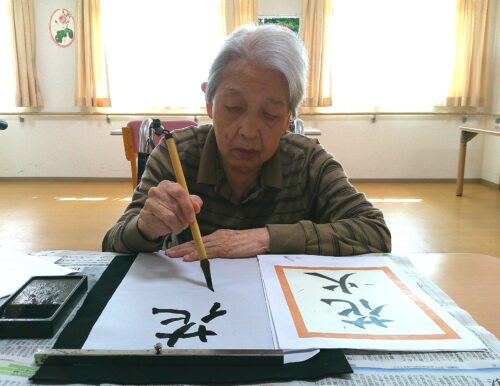 花
花火